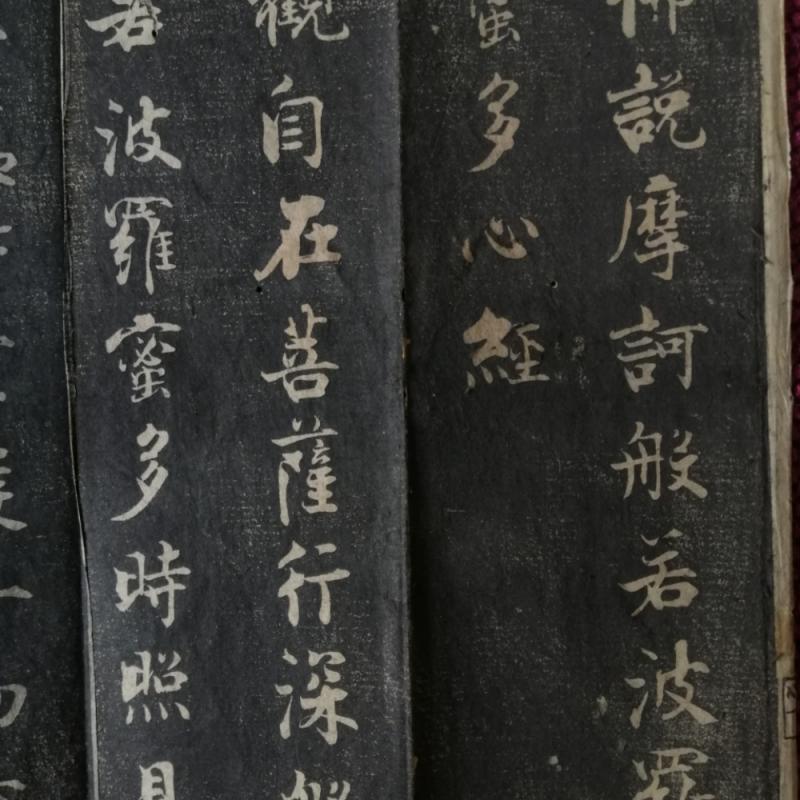 佛説摩訶般若波羅
蜜多心經
觀自在菩薩行深般
若波羅蜜多時照見